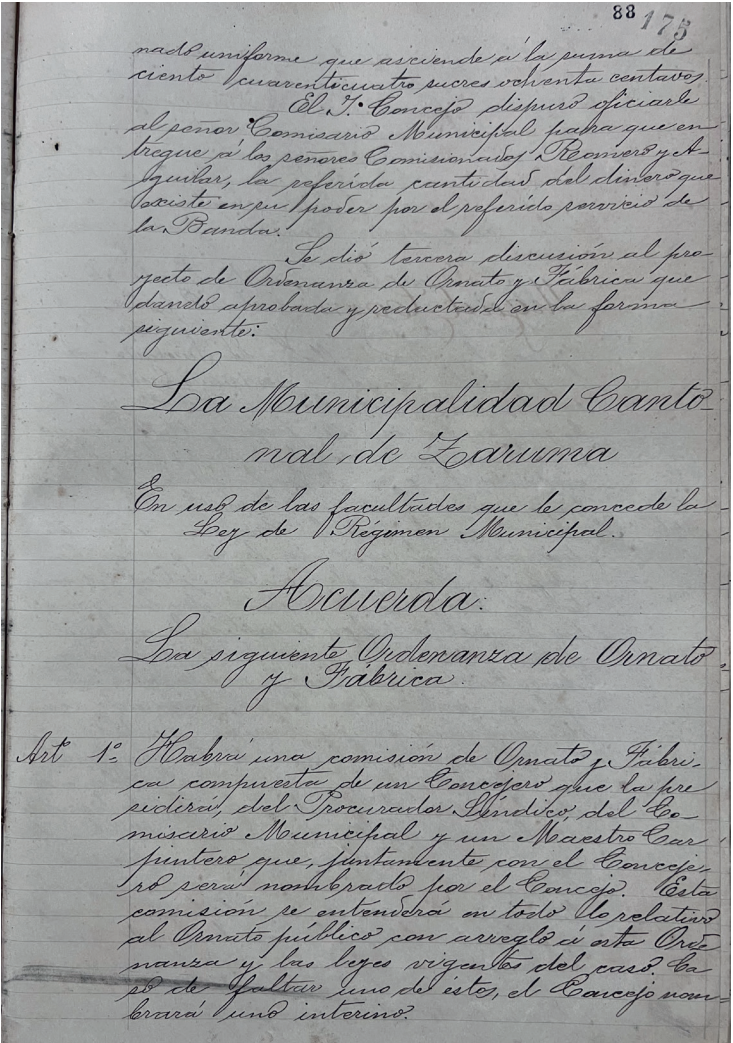 88 175
nado uniforme que asciende á la suma de
ciento cuarenticuatro sucres ochenta centavos.
El I. Concejo dispuso oficiarle
al señor Comisario Municipal para que en-
tregue á los señores Comisionados Romero y A-
guilar, la referida cantidad del dinero que
existe en su poder por el referido servicio de
la Banda.
Se dió tercera discusión al pro-
yecto de Ordenanza de Ornato y Fábrica que
dando aprobada y reductada en la forma
siguiente:
La Municipalidad Canto-
nal de Zaruma
En uso de las facultades que le concede la
Ley de Régimen Municipal.
Acuerda:
La siguiente Ordenanza de Ornato
y Fábrica.
Artº 1º Habrá una comisión de Ornato y Fábri-
ca compuesta de un Concejero que la pre
sidirá, del Procurador Síndico, del Co-
misario Municipal y un Maestro Car
pintero que, juntamente con el Conceje-
ro será nombrado por el Concejo. Esta
comisión se entenderá en todo lo relativo
al Ornato público con arreglo á esta Orde
nanza y las leyes vigentes del caso. Ca
so de faltar uno de estos, el Concejo nom-
brará uno interino.